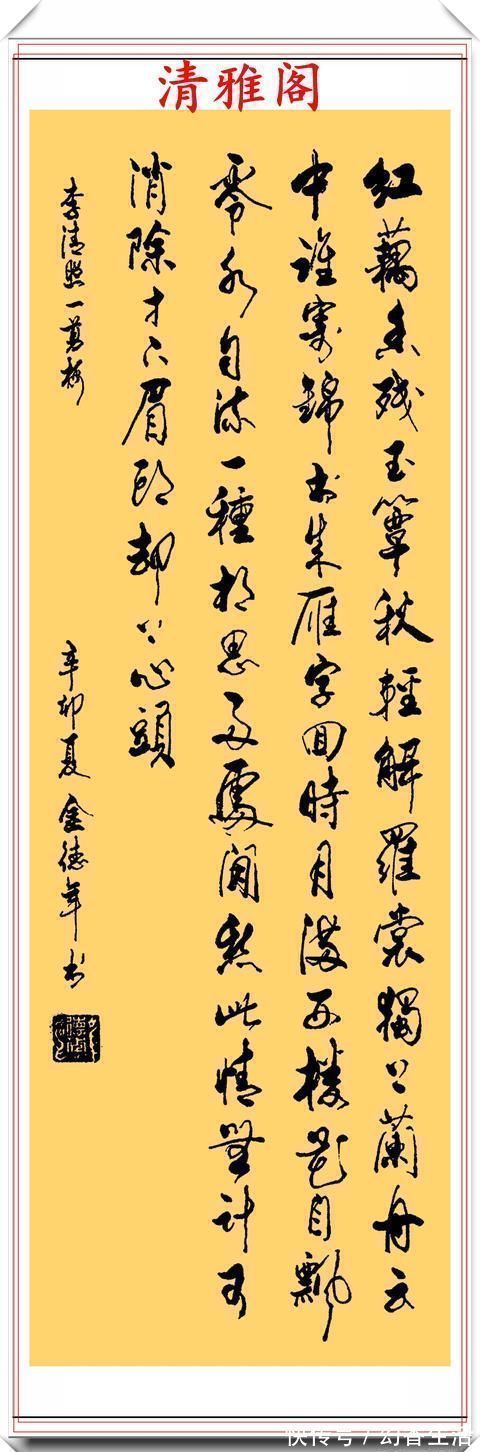 清雅阁
紅藕香残玉簟秋輕解羅裳獨上蘭舟云
中誰寄錦书来雁字回時月滿西樓花自飄
零水自流一種相思兩處閑愁此情無計可
消除才下眉頭却上心頭
李清照一剪梅
辛卯夏金德年书
快传号/幻香生活